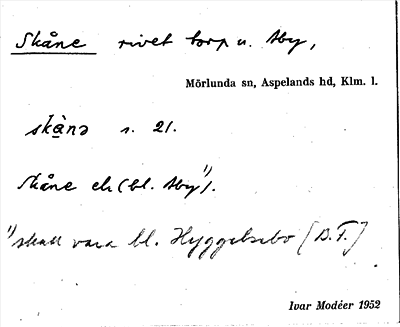 Skåne rivet torp u. Åby,
Mörlunda sn, Aspelands hd, Klm. l.
skà̱nə s. 21.
Skåne ek (bl. Åby¹⁾).
¹⁾ skall vara bl. Hyggelsebo [B.T.]
Ivar Modéer 1952